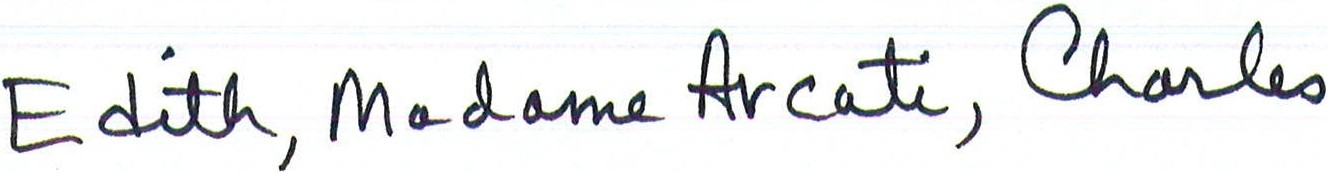 Edith, Madame Arcati, Charles